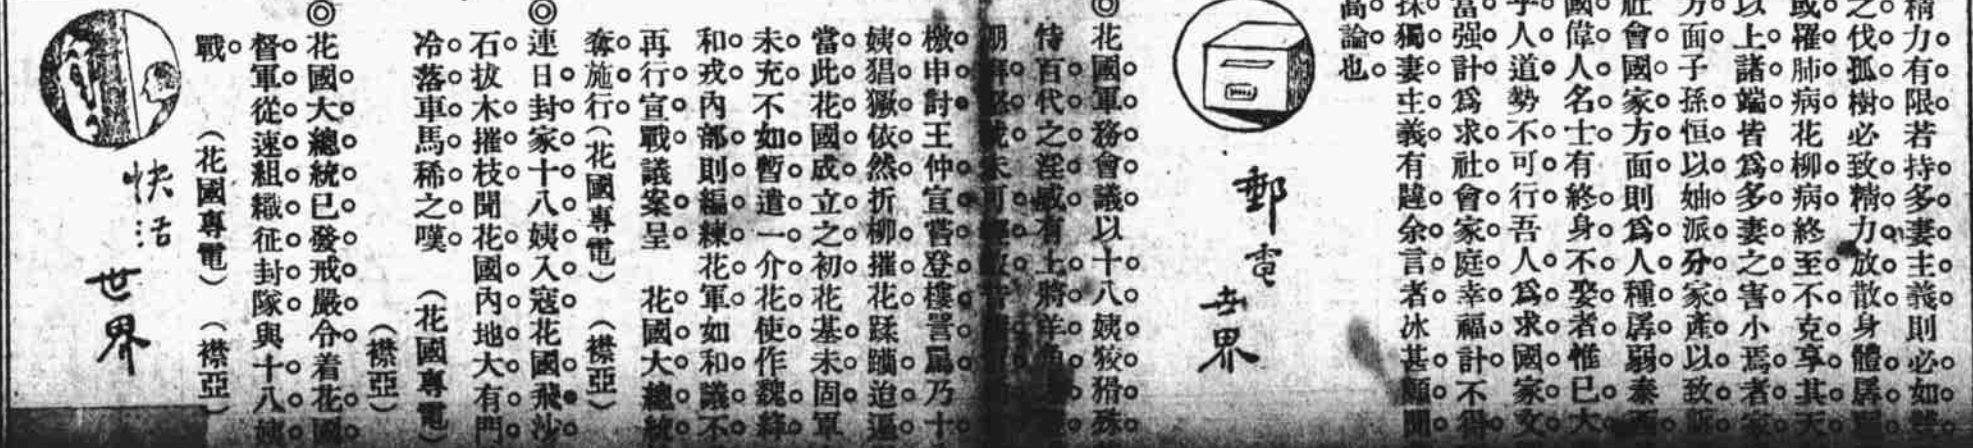 精力有限若持多妻主義則必如
之伐孤樹必致精力放散身體孱
或罹肺病花柳病終至不克享其天
以上諸端皆爲多妻之害小焉者
方面子孫恒以妯派分家產以致
社會國家方面則爲人種孱弱泰西
國偉人名士有終身不娶者惟已大
乎人道勢不可行吾人爲求國家文
當强計爲求社會家庭幸福計不得
採獨妻主義有違余言者冰甚願聞
高論也
郵電世界
◎花國軍務會議以十八姨狡猾殊
恃百代之淫威有上將羊角
檄申討王仲宣嘗登樓詈罵乃十
姨猖獗依然折柳摧花蹂躪迫逼
當此花國成立之初花基未固軍
未充不如暫遣一介花使作魏絳
和戎內部則編練花軍如和議不
再行宣戰議案呈 花國大總統
奪施行(花國專電) (襟亞)
◎連日封家十八姨入寇花國飛沙
石拔木摧枝聞花國內地大有門
冷落車馬稀之嘆 (花國專電)
(襟亞)
◎花國大總統已發戒嚴令着花國
督軍從速組織征封隊與十八姨
戰 (花國專電) (襟亞)
快活世界